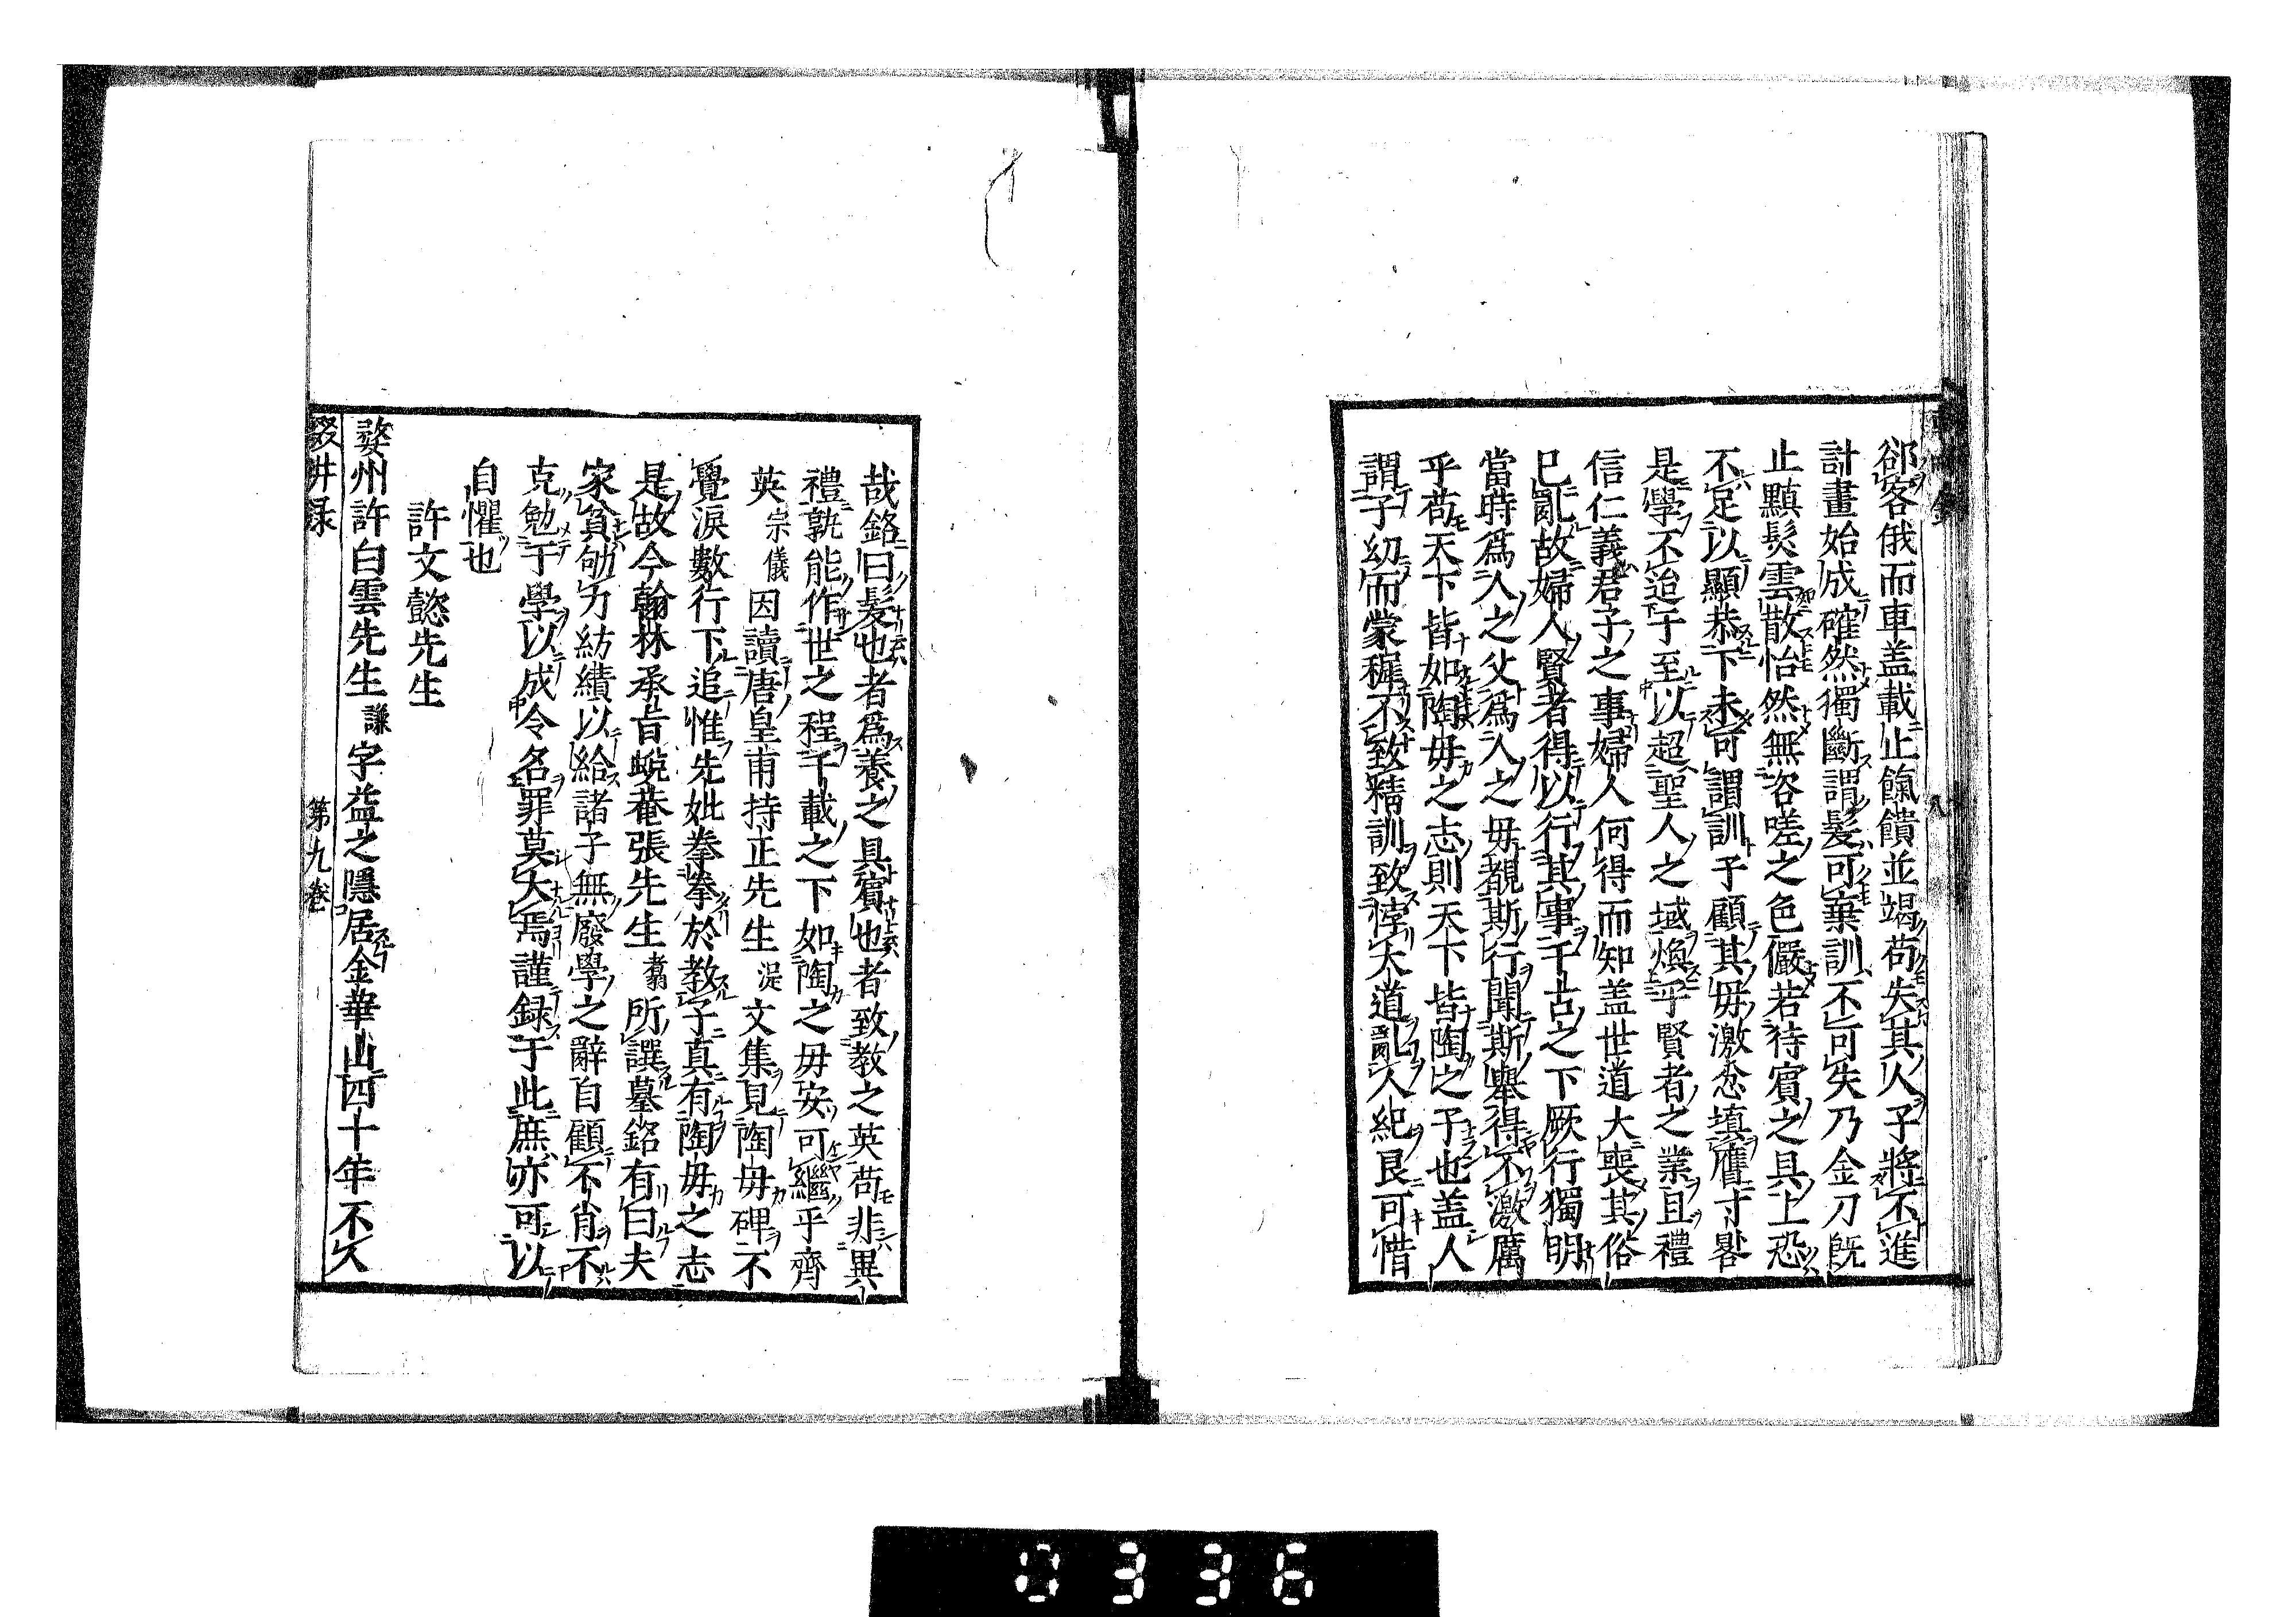 郤客俄而車盖載止餼饋並竭苟失其人子將不進
計畫始成確然獨斷謂髮可棄訓不可失乃金刀旣
止顚髮雲散怡然無咨嗟之色儼若待賓之具上恐
不足以顯恭下未可謂訓于顧其毋激忿填膺寸晷
是學不迨于至以超聖人之域煥乎賢者之業且禮
信仁義君子之事婦人何得而知盖世道大喪其俗
已亂故婦人賢者得以行其事千古之下厥行獨明
當時爲人之父爲人之毋覩斯行聞斯舉得不激厲
乎苟天下皆如陶毋之志則天下皆陶之子也盖人
謂子幼而蒙穉不致精訓致悖天道亂人紀良可惜
哉銘曰髮也者爲養之具賓也者致教之英苟非異
禮孰能作世之程千載之下如陶之毋安可繼乎齊
英宗儀因讀唐皇甫持正先生湜文集見陶毋碑不
覺淚數行下追惟先妣拳拳於教子真有陶毋之志
是故今翰林承旨蛻菴張先生翥所譔墓銘有曰夫
家貧劬力紡績以給諸子無廢學之辭自顧不肖不
克勉于學以成令名罪莫大焉謹録于此庶亦可以
自懼也
許文懿先生
婺州許白雲先生謙字益之隱居金華山四十年不入
輟耕录
第九卷
0336